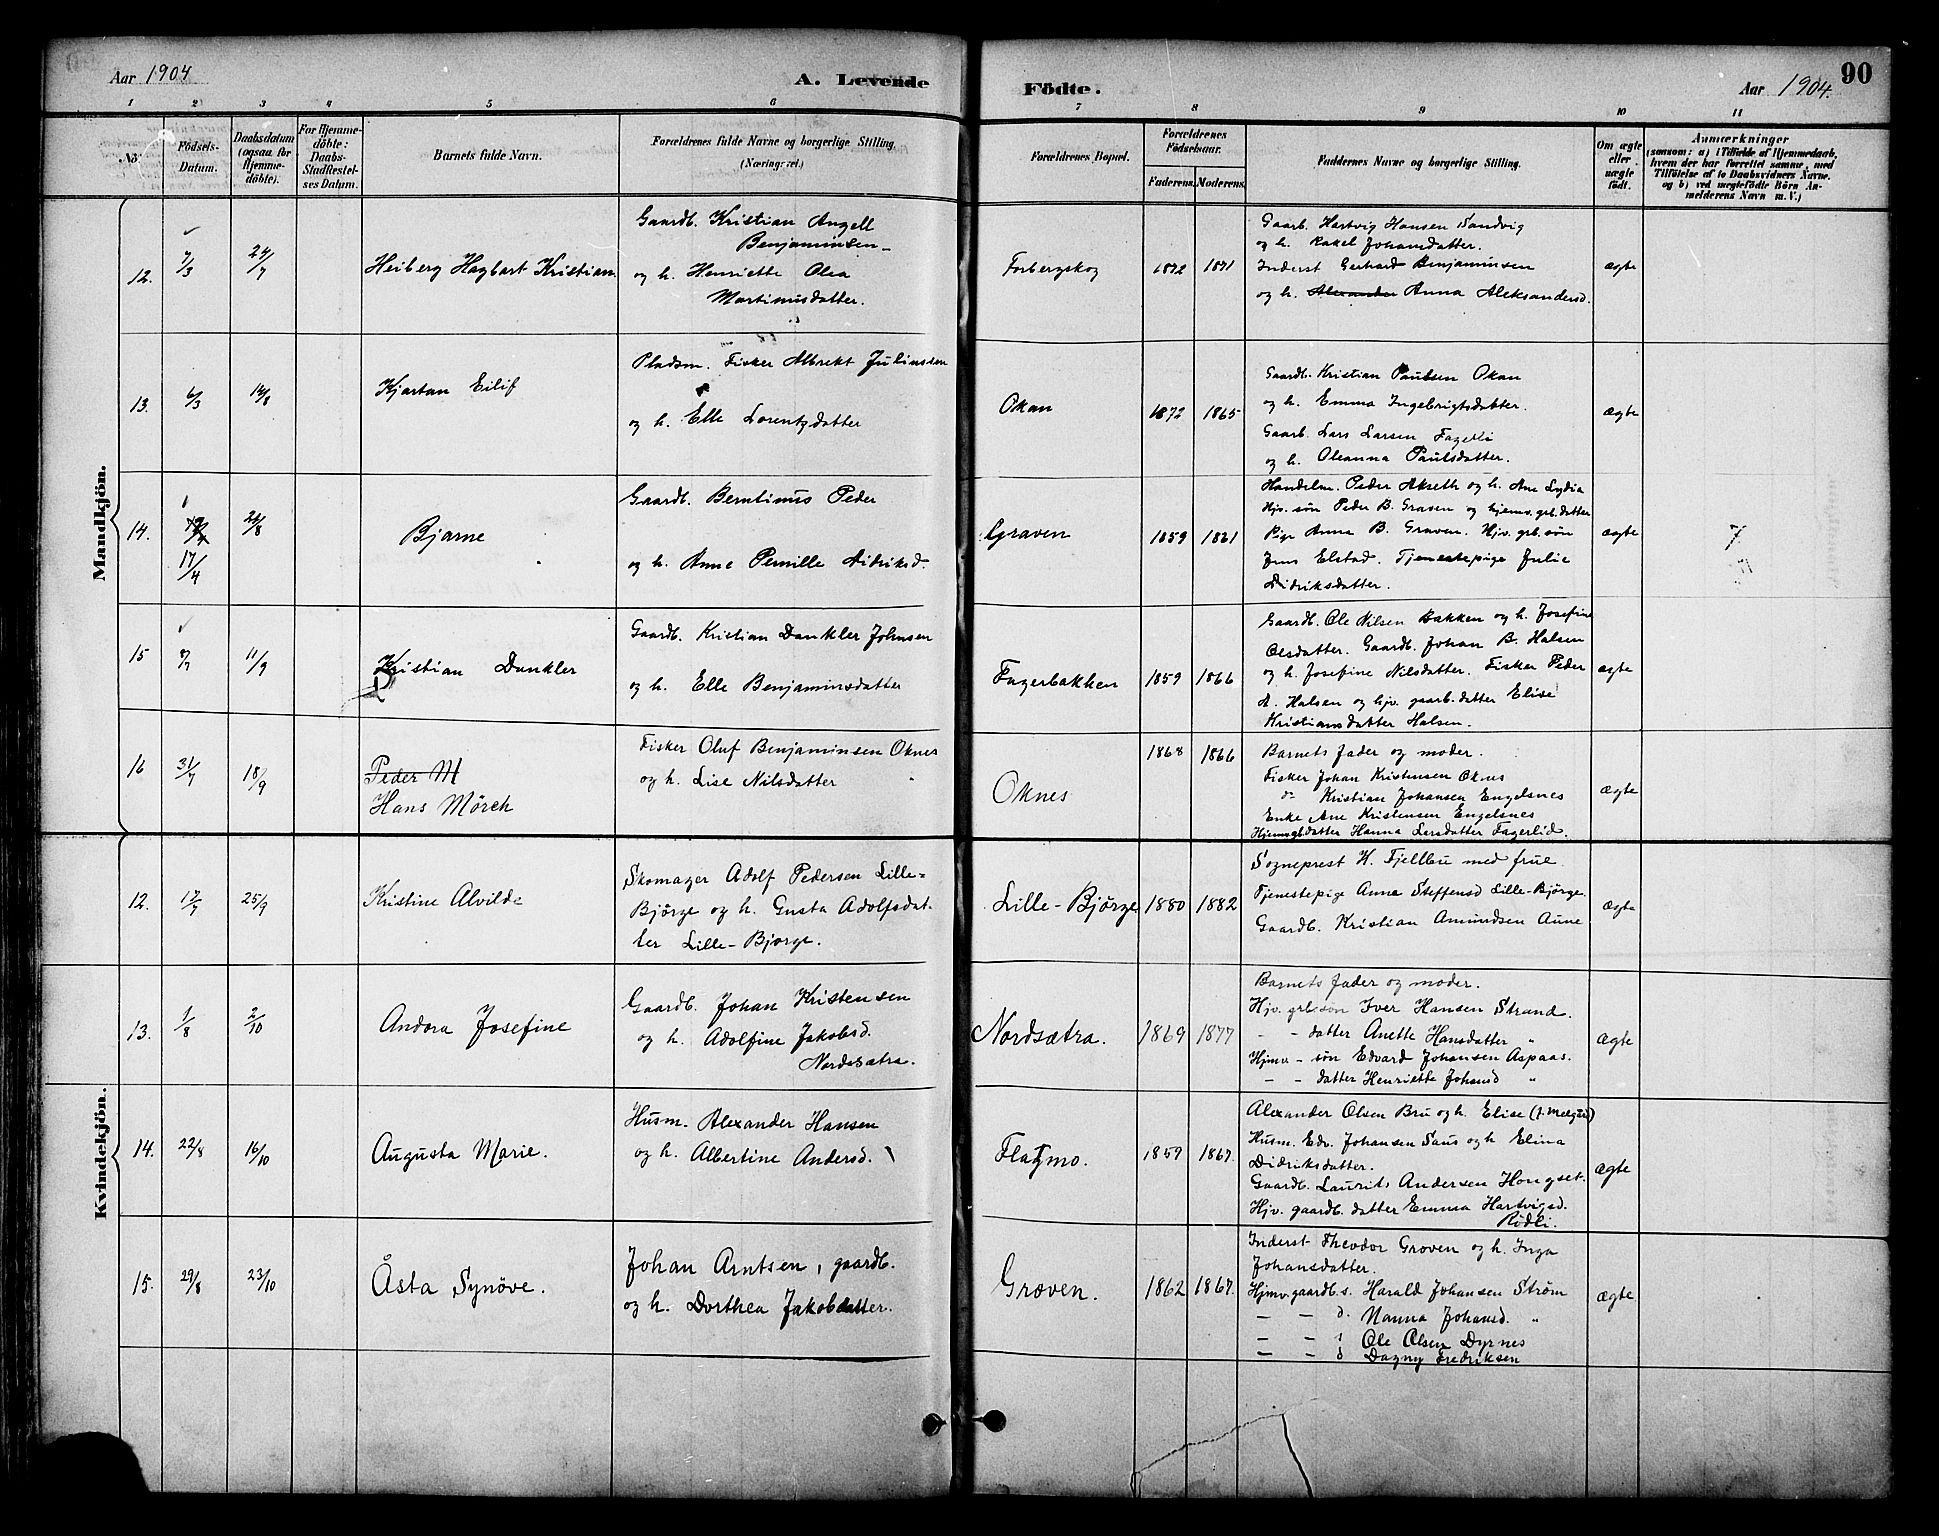 Aar 1904
A. Levende
Födte.
Aar 1904.
90
1 2 3 4 5 6 7 8 9 10 11
No.
Födsels-
Datum.
Daabsdatum
(ogsaa for
Hjemme-
döbte).
For Hjemme-
döbte:
Daabs-
Stadfæstel-
ses Datum.
Barnets fulde Navn.
Forældrenes fulde Navne og borgerlige Stilling.
(Næringsvei.)
Forældrenes Bopæl.
Forældrenes
Födselsaar.
Faderens. Moderens.
Faddernes Navne og borgerlige Stilling.
Om ægte
eller
uægte
födt.
Anmærkninger
(saasom: a) i Tilfælde af Hjemmedaab,
hvem der har forrettet samme, med
Tilföielse af to Daabsvidners Navne,
og b) ved uægtefödte Börn An-
melderens Navn m. V.)
Mandkjön.
12.
7/3
24/7
Heiberg Hagbart Kristian
Gaardb. Kristian Angell
Benjaminsen
og h. Henriette Olea
Martinusdatter.
Forbergskog
1872 1871
Gaarb. Hartvig Hansen Sandvig
og h. Rakel Johansdatter.
Inderst Gerhard Benjaminsen
og h. Alexander Anna Aleksandersd.
ægte
13.
6/3
14/8
Kjartan Eilif
Pladsm. Fisker Albrekt Juliussen
og h. Elle Lorentzdatter
Okan
1872 1865
Gaardb. Kristian Paulsen Okan
og h. Emma Ingebrigtsdatter.
Gaarb. Lars Larsen Fagerli
og h. Oleanna Paulsdatter.
ægte
14.
17/4
21/8
Bjarne
Gaardb. Berntinus Peder
og h. Anne Pernille Didriksd.
Graven
1859 1861
Handelm. Peder Akseth og h. Ane Lydia
Hjv. søn Peder B. Graven og hjemv. grb. datter
Pige Anna B. Graven. Hjv. grb. søn
Jens Elstad. Tjenestepige Julie
Didriksdatter.
ægte
7
15
7/7
11/9
Kristian Dankler
Gaardb. Kristian Dankler Johnsen
og h. Elle Benjaminsdatter
Fagerbakken
1859 1866
Gaardb. Ole Nilsen Bakken og h. Josefine
Olsdatter. Gaardb. Johan B. Halsen
og h. Josefine Nilsdatter. Fisker Peder
A. Halsen og hjv. gaarb. datter Elise
Kristiansdatter Halsen.
ægte
16
31/7
18/9
Peder M
Hans Mörch
Fisker Oluf Benjaminsen Oknes
og h. Lise Nilsdatter
Oknes
1868 1866
Barnets fader og moder.
Fisker Johan Kristensen Oknes
do Kristian Johansen Engelsnes
Enke Ane Kristensen Engelsnes
Hjemv gb. datter Hanna Larsdatter Fagerlid.
ægte
Kvindekjön.
12.
12/7
25/9
Kristine Alvilde
Skomager Adolf Pedersen Lille-
Bjørge og h. Gusta Adolfsdat-
ter Lille-Bjørge.
Lille-Bjørge
1880 1882
Sogneprest H. Fjellbu med frue.
Tjenestepige Anna Steffensd Lille-Bjørge.
Gaardb. Kristian Amundsen Aune
ægte
13.
1/8
2/10
Andora Josefine
Gaardb. Johan Kristensen
og h. Adolfine Jakobsd.
Nordsætra.
Nordsætra.
1869 1877
Barnets fader og moder.
Hjv. grb. søn Iver Hansen Strand.
— - datter Anette Hansdatter "
Hjmv - søn Edvard Johansen Aspaas.
— - datter Henriette Johansd "
ægte
14.
22/8
16/10
Augusta Marie.
Husm. Alexander Hansen
og h. Albertine Andersd.
Flatmo.
1859 1867.
Alexander Olsen Bru og h. Elise
Husm. Edv. Johansen Saus og h Elina
Didriksdatter.
Gaardb. Laurits Andersen Hongset.
Hjv. gaardb. datter Emma Hartvigsd.
Rödli.
ægte
15.
29/8
23/10
Åsta Synöve.
Johan Arntsen, gaardb.
og h. Dorthea Jakobdatter.
Græven.
1862 1867.
Inderst Theodor Groven og h. Inga
Johansdatter.
Hjmv. gaardb. s. Harald Johansen Ström
— — d. Nanna Johansd. "
— — s Ole Olsen Dyrnes
— — d Dagny Fredriksen
ægte